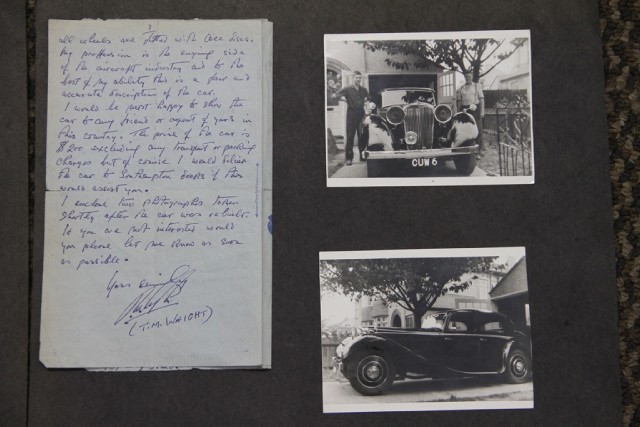 all wheels are fitted with Ace discs.
My profession is the engine side
of the aircraft industry and to the
best of my ability this is a fair and
accurate description of the car.
I would be most happy to show the
car to any friend or agent of yours in
this country. The price of the car is
£200 excluding any transport or packing
charges but of course I would deliver
the car to Southampton docks if this
would assist you.
I enclose two photographs taken
shortly after the car was rebuilt.
If you are not interested would
you please let me know as soon
as possible.
Yours sincerely
(T.M. WRIGHT)
CUW 6